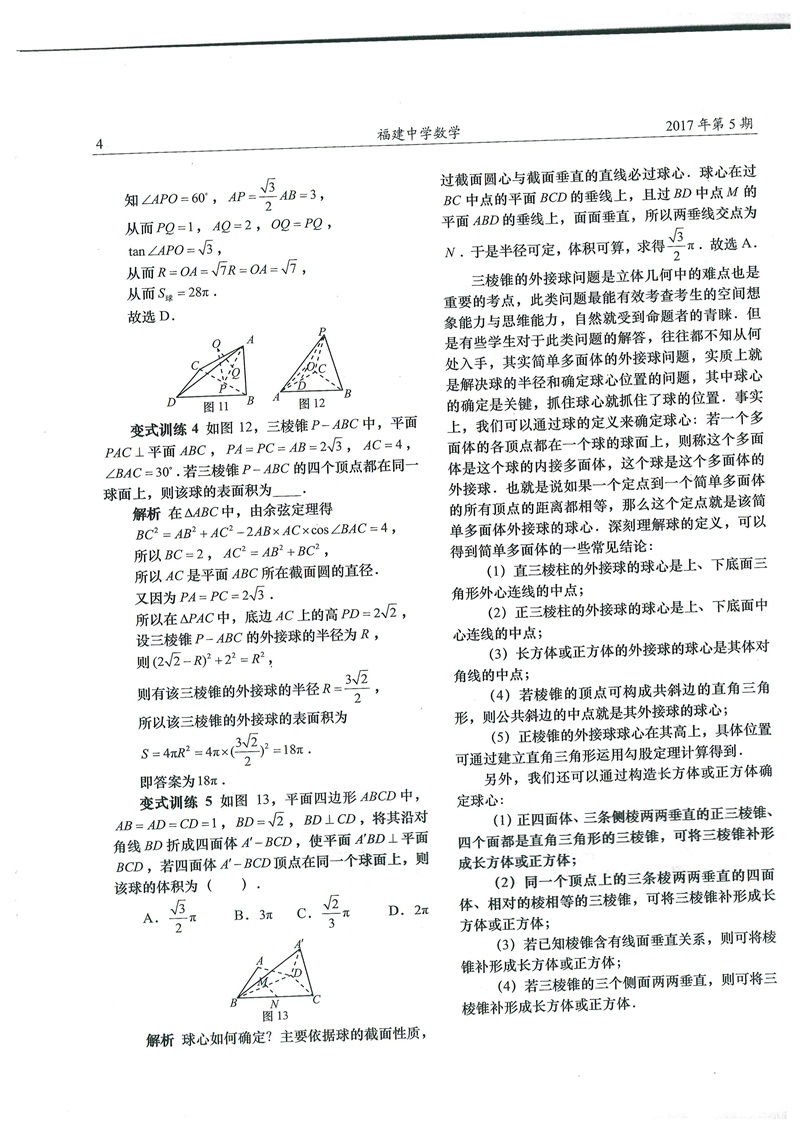 4
福建中学数学
2017 年第 5 期
知∠APO = 60°，AP = √3/2 AB = 3，
从而 PQ = 1，AQ = 2，OQ = PQ，
tan∠APO = √3，
从而 R = OA = √7R = OA = √7，
从而 S球 = 28π．
故选 D．
Q A C O P D B
图 11
P O C D A B
图 12
变式训练 4 如图 12，三棱锥 P − ABC 中，平面
PAC ⊥ 平面 ABC，PA = PC = AB = 2√3，AC = 4，
∠BAC = 30°．若三棱锥 P − ABC 的四个顶点都在同一
球面上，则该球的表面积为____．
解析 在 ΔABC 中，由余弦定理得
BC² = AB² + AC² − 2AB × AC × cos∠BAC = 4，
所以 BC = 2，AC² = AB² + BC²，
所以 AC 是平面 ABC 所在截面圆的直径．
又因为 PA = PC = 2√3．
所以在 ΔPAC 中，底边 AC 上的高 PD = 2√2，
设三棱锥 P − ABC 的外接球的半径为 R，
则 (2√2 − R)² + 2² = R²，
则有该三棱锥的外接球的半径 R = 3√2/2，
所以该三棱锥的外接球的表面积为
S = 4πR² = 4π × (3√2/2)² = 18π．
即答案为 18π．
变式训练 5 如图 13，平面四边形 ABCD 中，
AB = AD = CD = 1，BD = √2，BD ⊥ CD，将其沿对
角线 BD 折成四面体 A′ − BCD，使平面 A′BD ⊥ 平面
BCD，若四面体 A′ − BCD 顶点在同一个球面上，则
该球的体积为（ ）．
A．√3/2 π B．3π C．√2/3 π D．2π
A′ A D M B N C
图 13
解析 球心如何确定？主要依据球的截面性质，
过截面圆心与截面垂直的直线必过球心．球心在过
BC 中点的平面 BCD 的垂线上，且过 BD 中点 M 的
平面 ABD 的垂线上，面面垂直，所以两垂线交点为
N．于是半径可定，体积可算，求得 √3/2 π．故选 A．
三棱锥的外接球问题是立体几何中的难点也是
重要的考点，此类问题最能有效考查考生的空间想
象能力与思维能力，自然就受到命题者的青睐．但
是有些学生对于此类问题的解答，往往都不知从何
处入手，其实简单多面体的外接球问题，实质上就
是解决球的半径和确定球心位置的问题，其中球心
的确定是关键，抓住球心就抓住了球的位置．事实
上，我们可以通过球的定义来确定球心：若一个多
面体的各顶点都在一个球的球面上，则称这个多面
体是这个球的内接多面体，这个球是这个多面体的
外接球．也就是说如果一个定点到一个简单多面体
的所有顶点的距离都相等，那么这个定点就是该简
单多面体外接球的球心．深刻理解球的定义，可以
得到简单多面体的一些常见结论：
（1）直三棱柱的外接球的球心是上、下底面三
角形外心连线的中点；
（2）正三棱柱的外接球的球心是上、下底面中
心连线的中点；
（3）长方体或正方体的外接球的球心是其体对
角线的中点；
（4）若棱锥的顶点可构成共斜边的直角三角
形，则公共斜边的中点就是其外接球的球心；
（5）正棱锥的外接球球心在其高上，具体位置
可通过建立直角三角形运用勾股定理计算得到．
另外，我们还可以通过构造长方体或正方体确
定球心：
（1）正四面体、三条侧棱两两垂直的正三棱锥、
四个面都是直角三角形的三棱锥，可将三棱锥补形
成长方体或正方体；
（2）同一个顶点上的三条棱两两垂直的四面
体、相对的棱相等的三棱锥，可将三棱锥补形成长
方体或正方体；
（3）若已知棱锥含有线面垂直关系，则可将棱
锥补形成长方体或正方体；
（4）若三棱锥的三个侧面两两垂直，则可将三
棱锥补形成长方体或正方体．